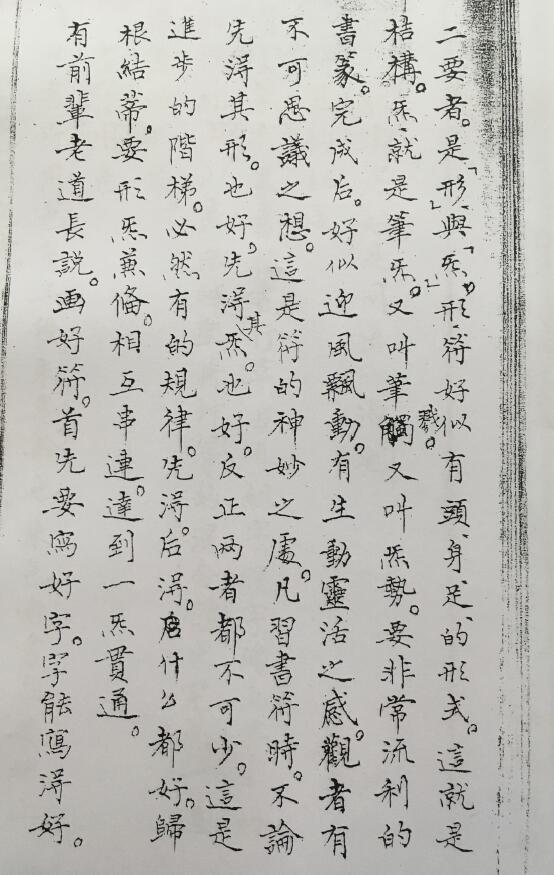 二要者。是「形」與「炁」形、符好似有頭、身、足、的形式。這就是
桔構。炁、就是筆炁。又叫筆觸。又叫炁勢。要非常流利的
書篆。完成后。好似迎風飄動。有生動靈活之感。觀者有
不可思議之想。這是符的神妙之處。凡習書符時。不論
先淂其形。也好。先淂其炁。也好。反正两者都不可少。這是
進步的階梯。必然有的規律。先淂。后淂。什么都好。歸
根結蒂。要形炁兼俻。相互串連。達到一炁貫通。
有前輩老道長説。画好符。首先要寫好字。字能寫淂好。